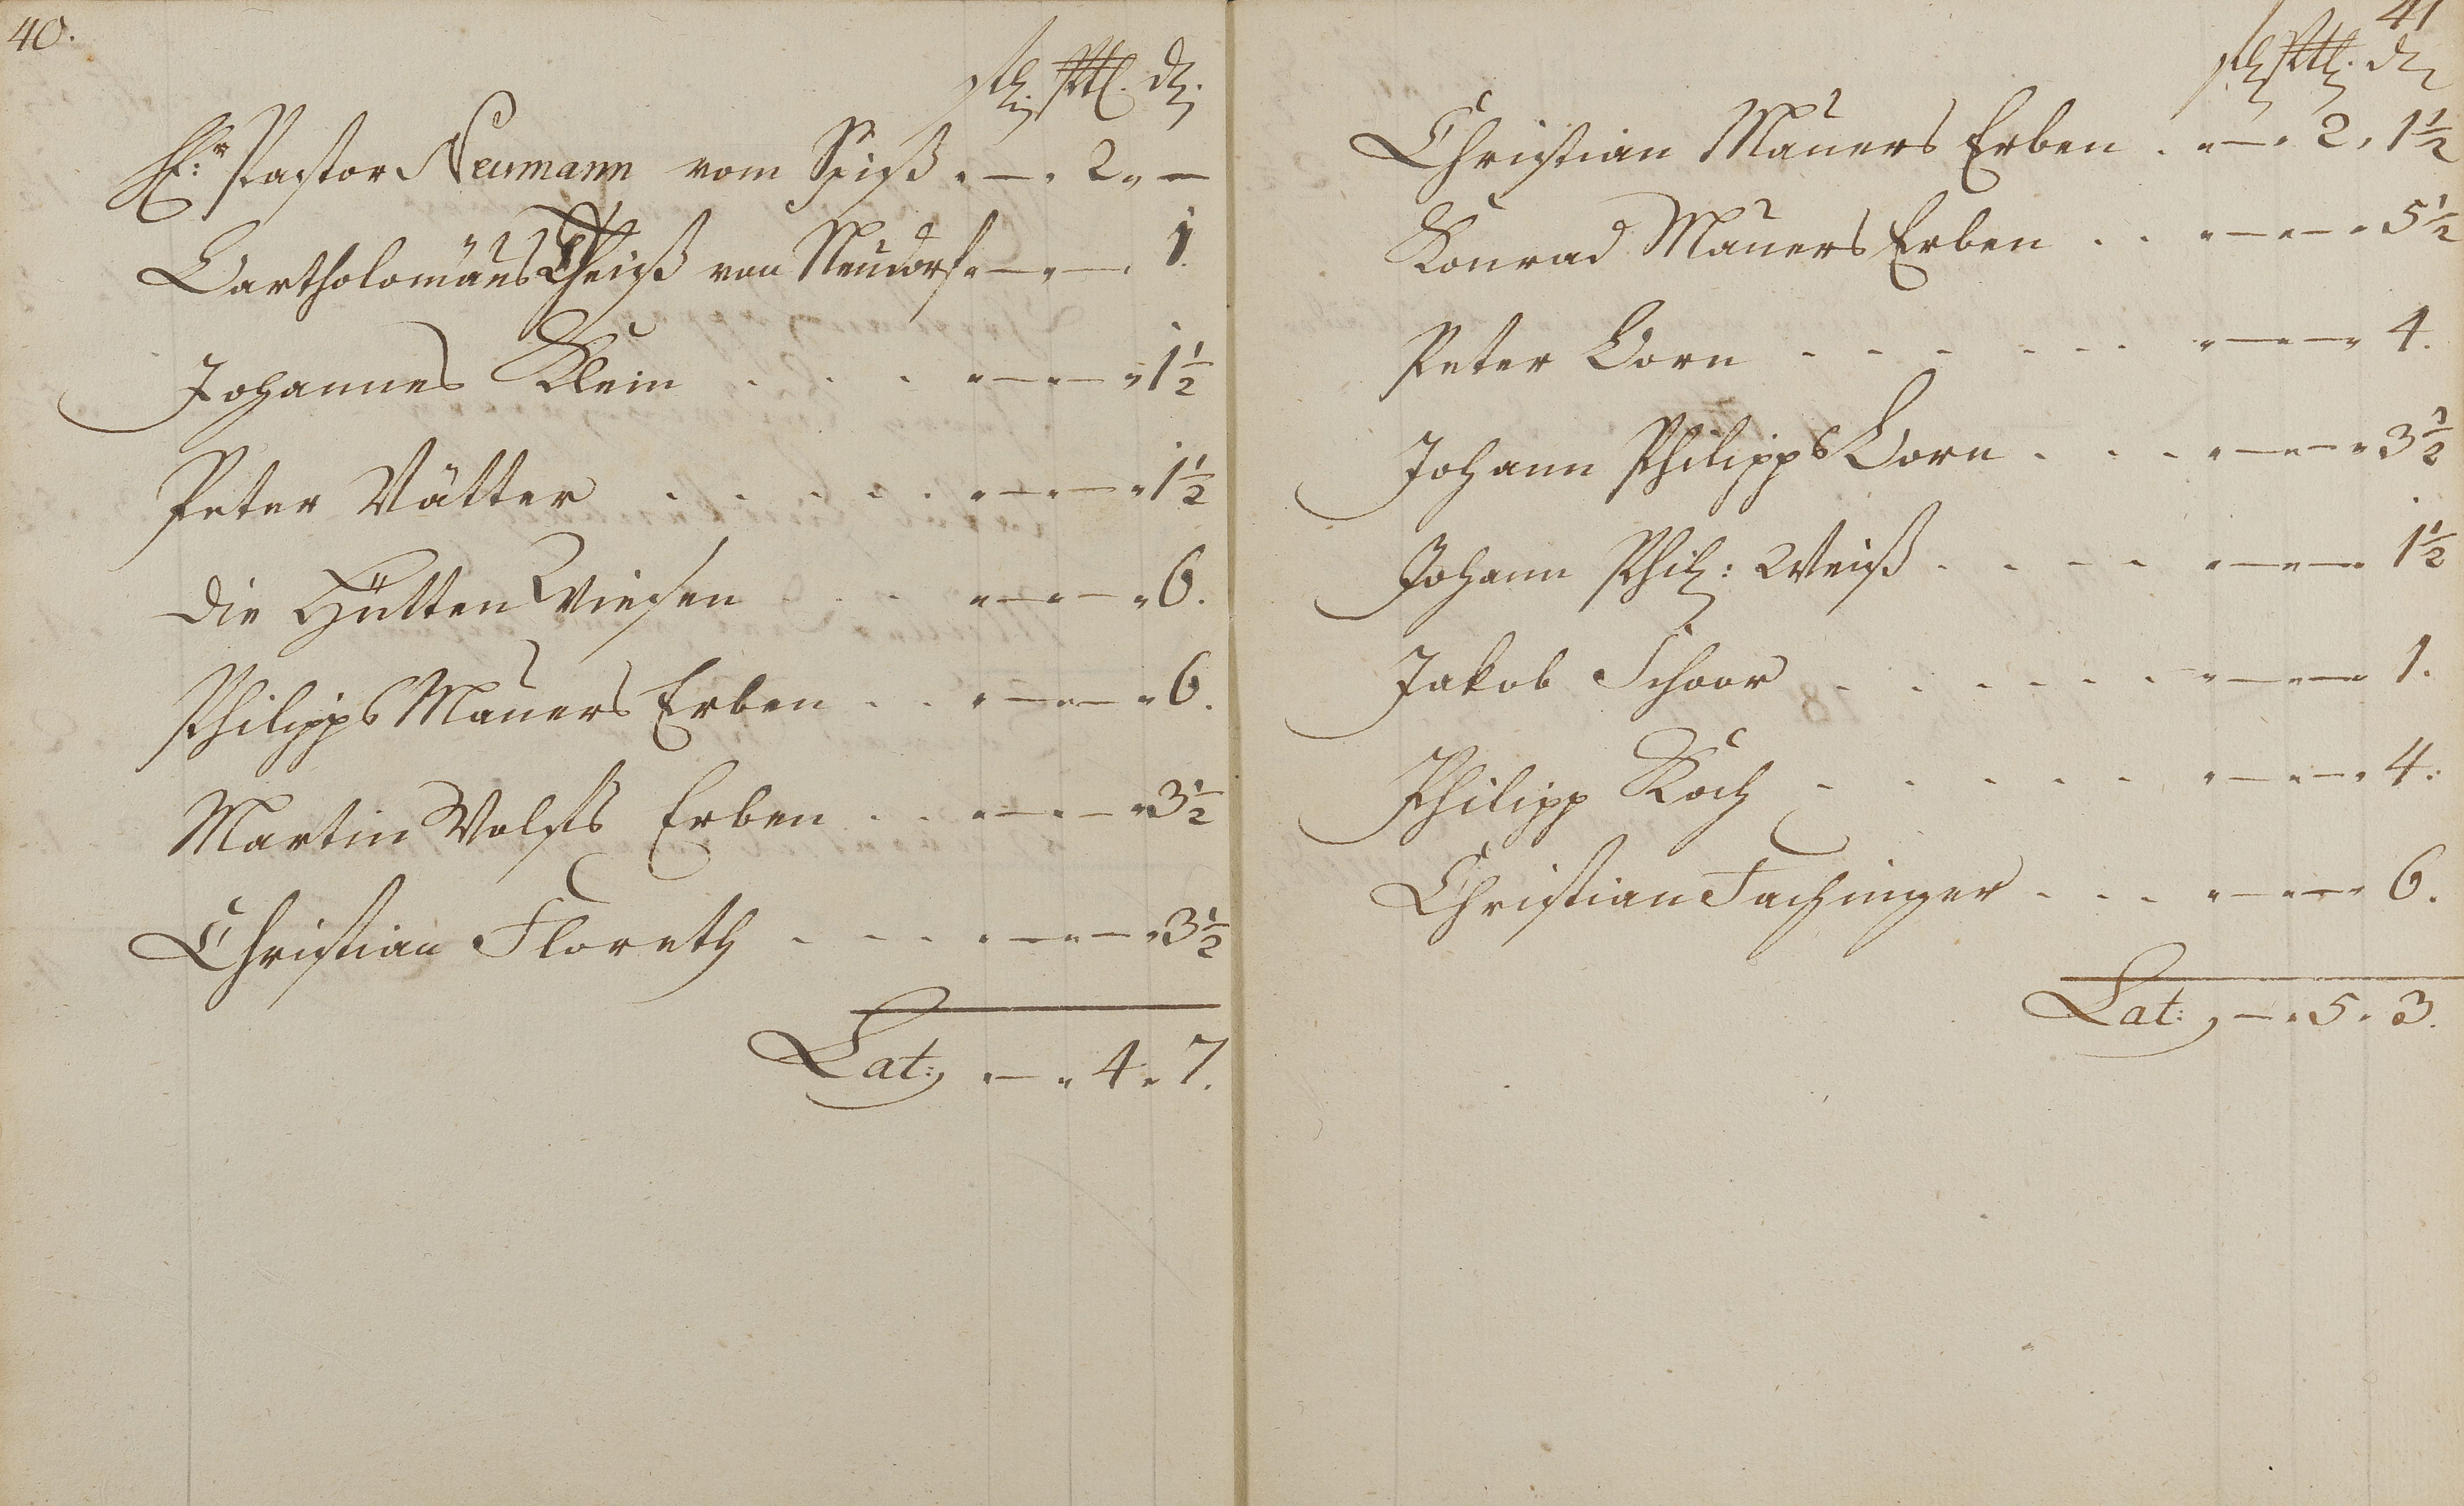 40.
Hr: Pastor Neumann vom Spieß . — . 2 „ —
Bartholomäus Theiß von Neudorf „ — „ — . 1.
Johannes Klein . . . „ — „ — „ 1 1/2
Peter Vätter . . . . . „ — „ — „ 1 1/2
die Hütten Wiesen . . . „ — „ — „ 6.
Philipps Mäuers Erben . . „ — „ — „ 6.
Martin Wolfs Erben . . „ — „ — „ 3 1/2
Christian Floreth . . . „ — „ — „ 3 1/2
Lat: „ — „ 4 „ 7.
41
Christian Mäuers Erben . „ — „ 2 „ 1 1/2
Konrad Mäuers Erben . . „ — „ — „ 5 1/2
Peter Dorn . . . . . . „ — „ — „ 4.
Johann Philipps Dorn . . . „ — „ — „ 3 1/2
Johann Phil: Weiß . . . . „ — „ — „ 1 1/2
Jakob Schoor . . . . . . „ — „ — „ 1.
Philipp Koch . . . . . „ — „ — „ 4.
Christian Fachinger . . . „ — „ — „ 6.
Lat: „ — „ 5 „ 3.